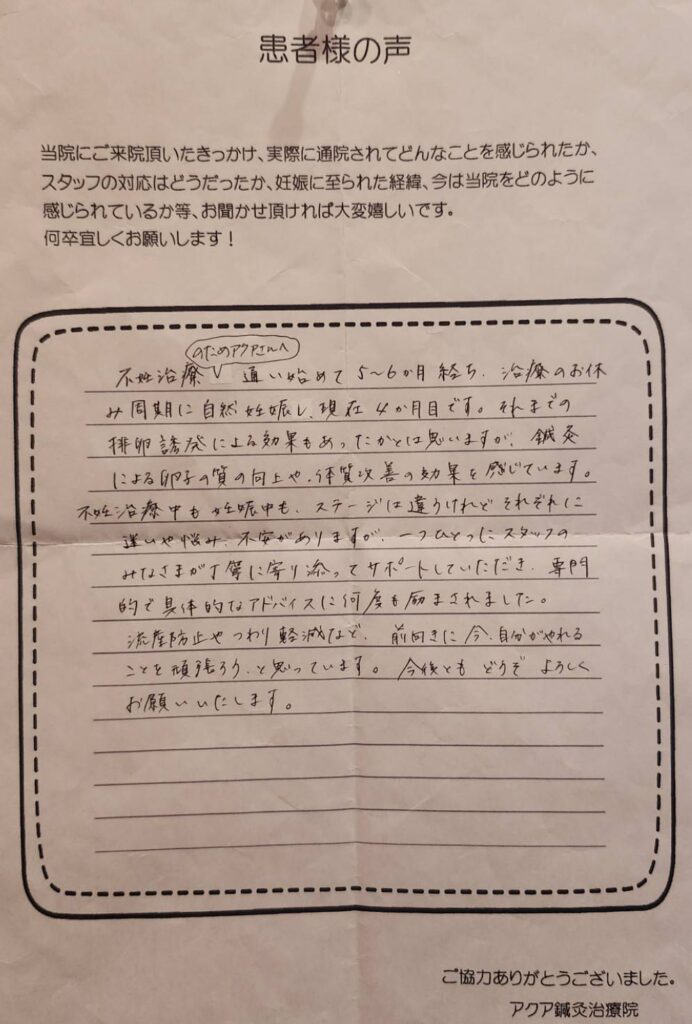 患者様の声
当院にご来院頂いたきっかけ、実際に通院されてどんなことを感じられたか、
スタッフの対応はどうだったか、妊娠に至られた経緯、今は当院をどのように
感じられているか等、お聞かせ頂ければ大変嬉しいです。
何卒宜しくお願いします！
のためアクアさんへ
不妊治療 通い始めて 5〜6か月 経ち、治療のお休
み周期に自然妊娠し、現在 4か月目です。それまでの
排卵誘発による効果もあったかとは思いますが、鍼灸
による卵子の質の向上や、体質改善の効果を感じています。
不妊治療中も妊娠中も、ステージは違うけれどそれぞれに
迷いや悩み、不安がありますが、一つひとつにスタッフの
みなさまが丁寧に寄り添ってサポートしていただき、専門
的で具体的なアドバイスに何度も励まされました。
流産防止やつわり軽減など、前向きに今、自分がやれる
ことを頑張ろう、と思っています。今後とも どうぞ よろしく
お願いいたします。
ご協力ありがとうございました。
アクア鍼灸治療院